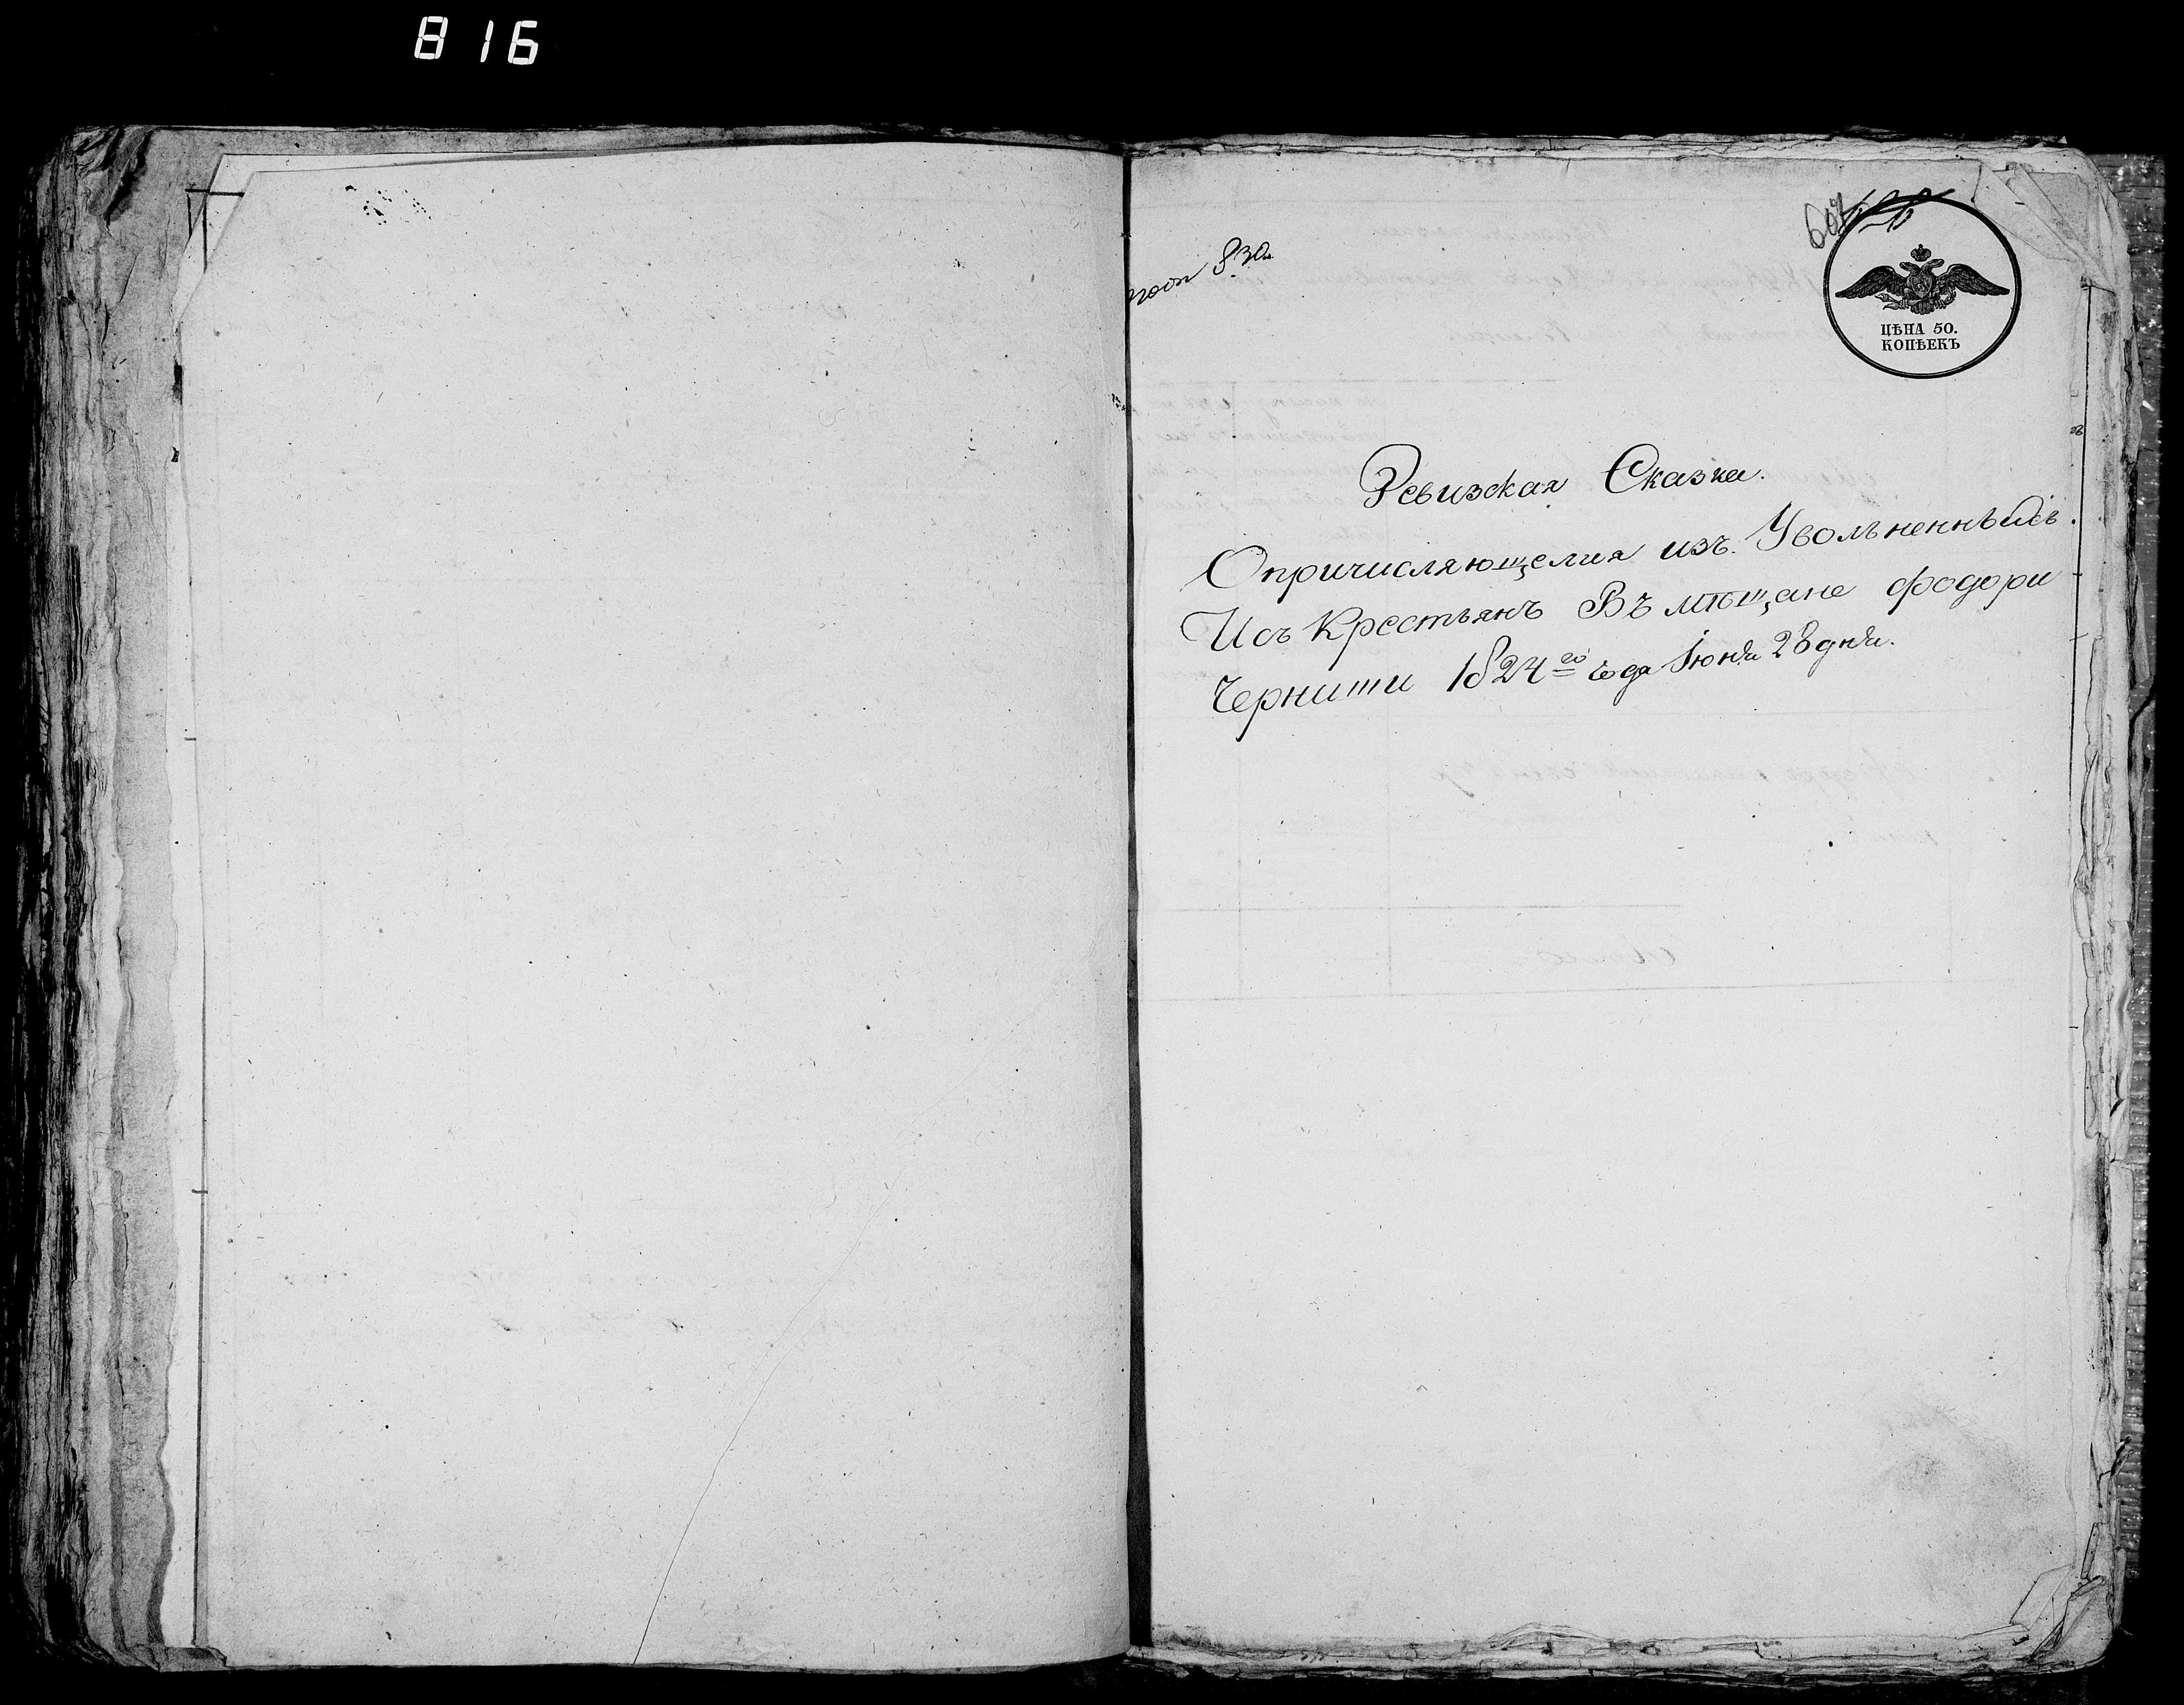 816
607
ЦѢНА 50.
КОПѢЕКЪ
Ревизская Сказка.
Опричисляющемия изъ Увольненныхъ
Исъ Крестьянъ Въ мѣщане фодори
Чернити 1824го года Iюня 28 дня.